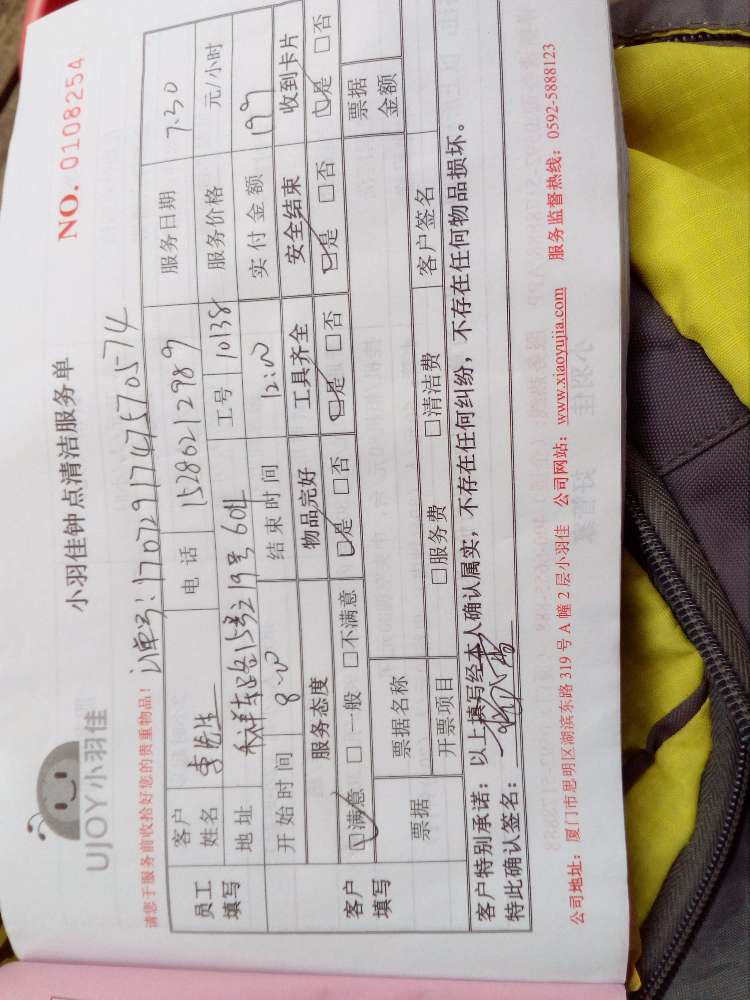 UJOY小羽佳
小羽佳钟点清洁服务单
NO. 0108254
请您于服务前收拾好您的贵重物品！
订单号：1707291747570574
员工填写
客户姓名 李先生 电话 15286212989 服务日期 7.30
地址 19号601 工号 10138 服务价格 元/小时
开始时间 8:00 结束时间 12:00 实付金额 199
客户填写
服务态度 物品完好 工具齐全 安全结束 收到卡片
☑满意 □一般 □不满意 ☑是 □否 ☑是 □否 ☑是 □否 ☑是 □否
票据 票据名称 票据金额
开票项目 □服务费 □清洁费 客户签名
客户特别承诺：以上填写经本人确认属实，不存在任何纠纷，不存在任何物品损坏。
特此确认签名：
公司地址：厦门市思明区湖滨东路 319 号 A 幢 2 层小羽佳 公司网站：www.xiaoyujia.com 服务监督热线：0592-5888123